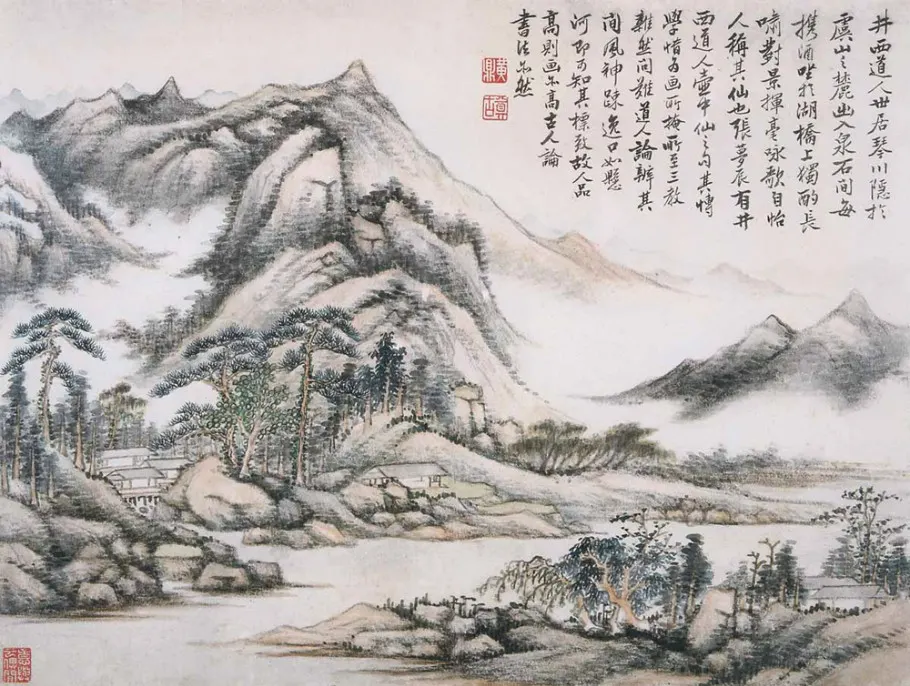 井西道人世居琴川隱於
虞山之麓出入泉石間每
携酒坐於湖橋上獨酌長
嘯對景揮毫咏歌自怡
人稱其仙也張夢辰有井
西道人壺中仙之句其博
學惜為画所掩所至三教
雜然問難道人論辨其
間風神疎逸口如懸
河即可知其標致故人品
高則画亦高古人論
書法亦然
黃鼎